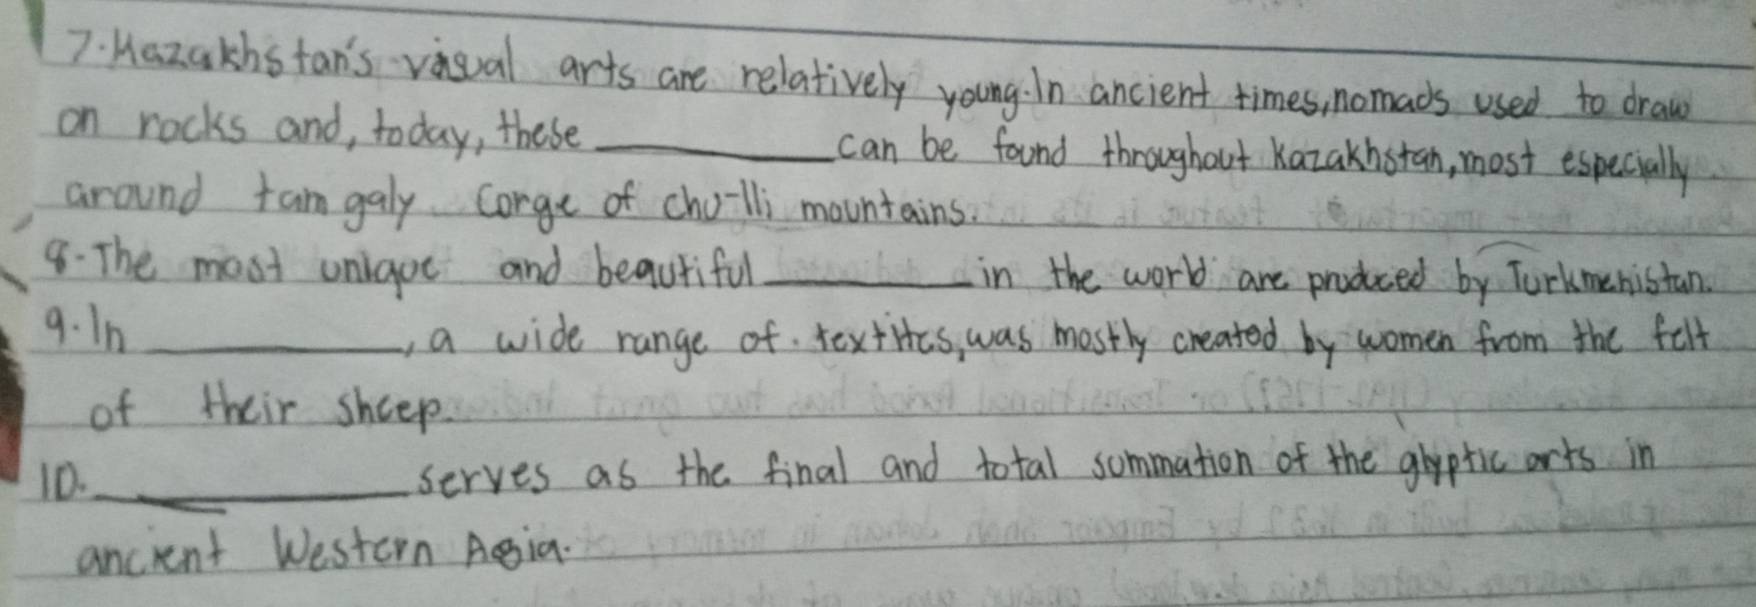 7. Kazakhstan's visual arts are relatively young. In ancient times, nomads used to draw
on rocks and, today, these __________ can be found throughout Kazakhstan, most especially
around tamgaly Gorge of chu-Ili mountains.
8. The most unique and beautiful __________ in the world are produced by Turkmenistan.
9. In __________, a wide range of. textiles, was mostly created by women from the felt
of their sheep.
10. __________ serves as the final and total summation of the glyptic arts in
ancient Western Asia.